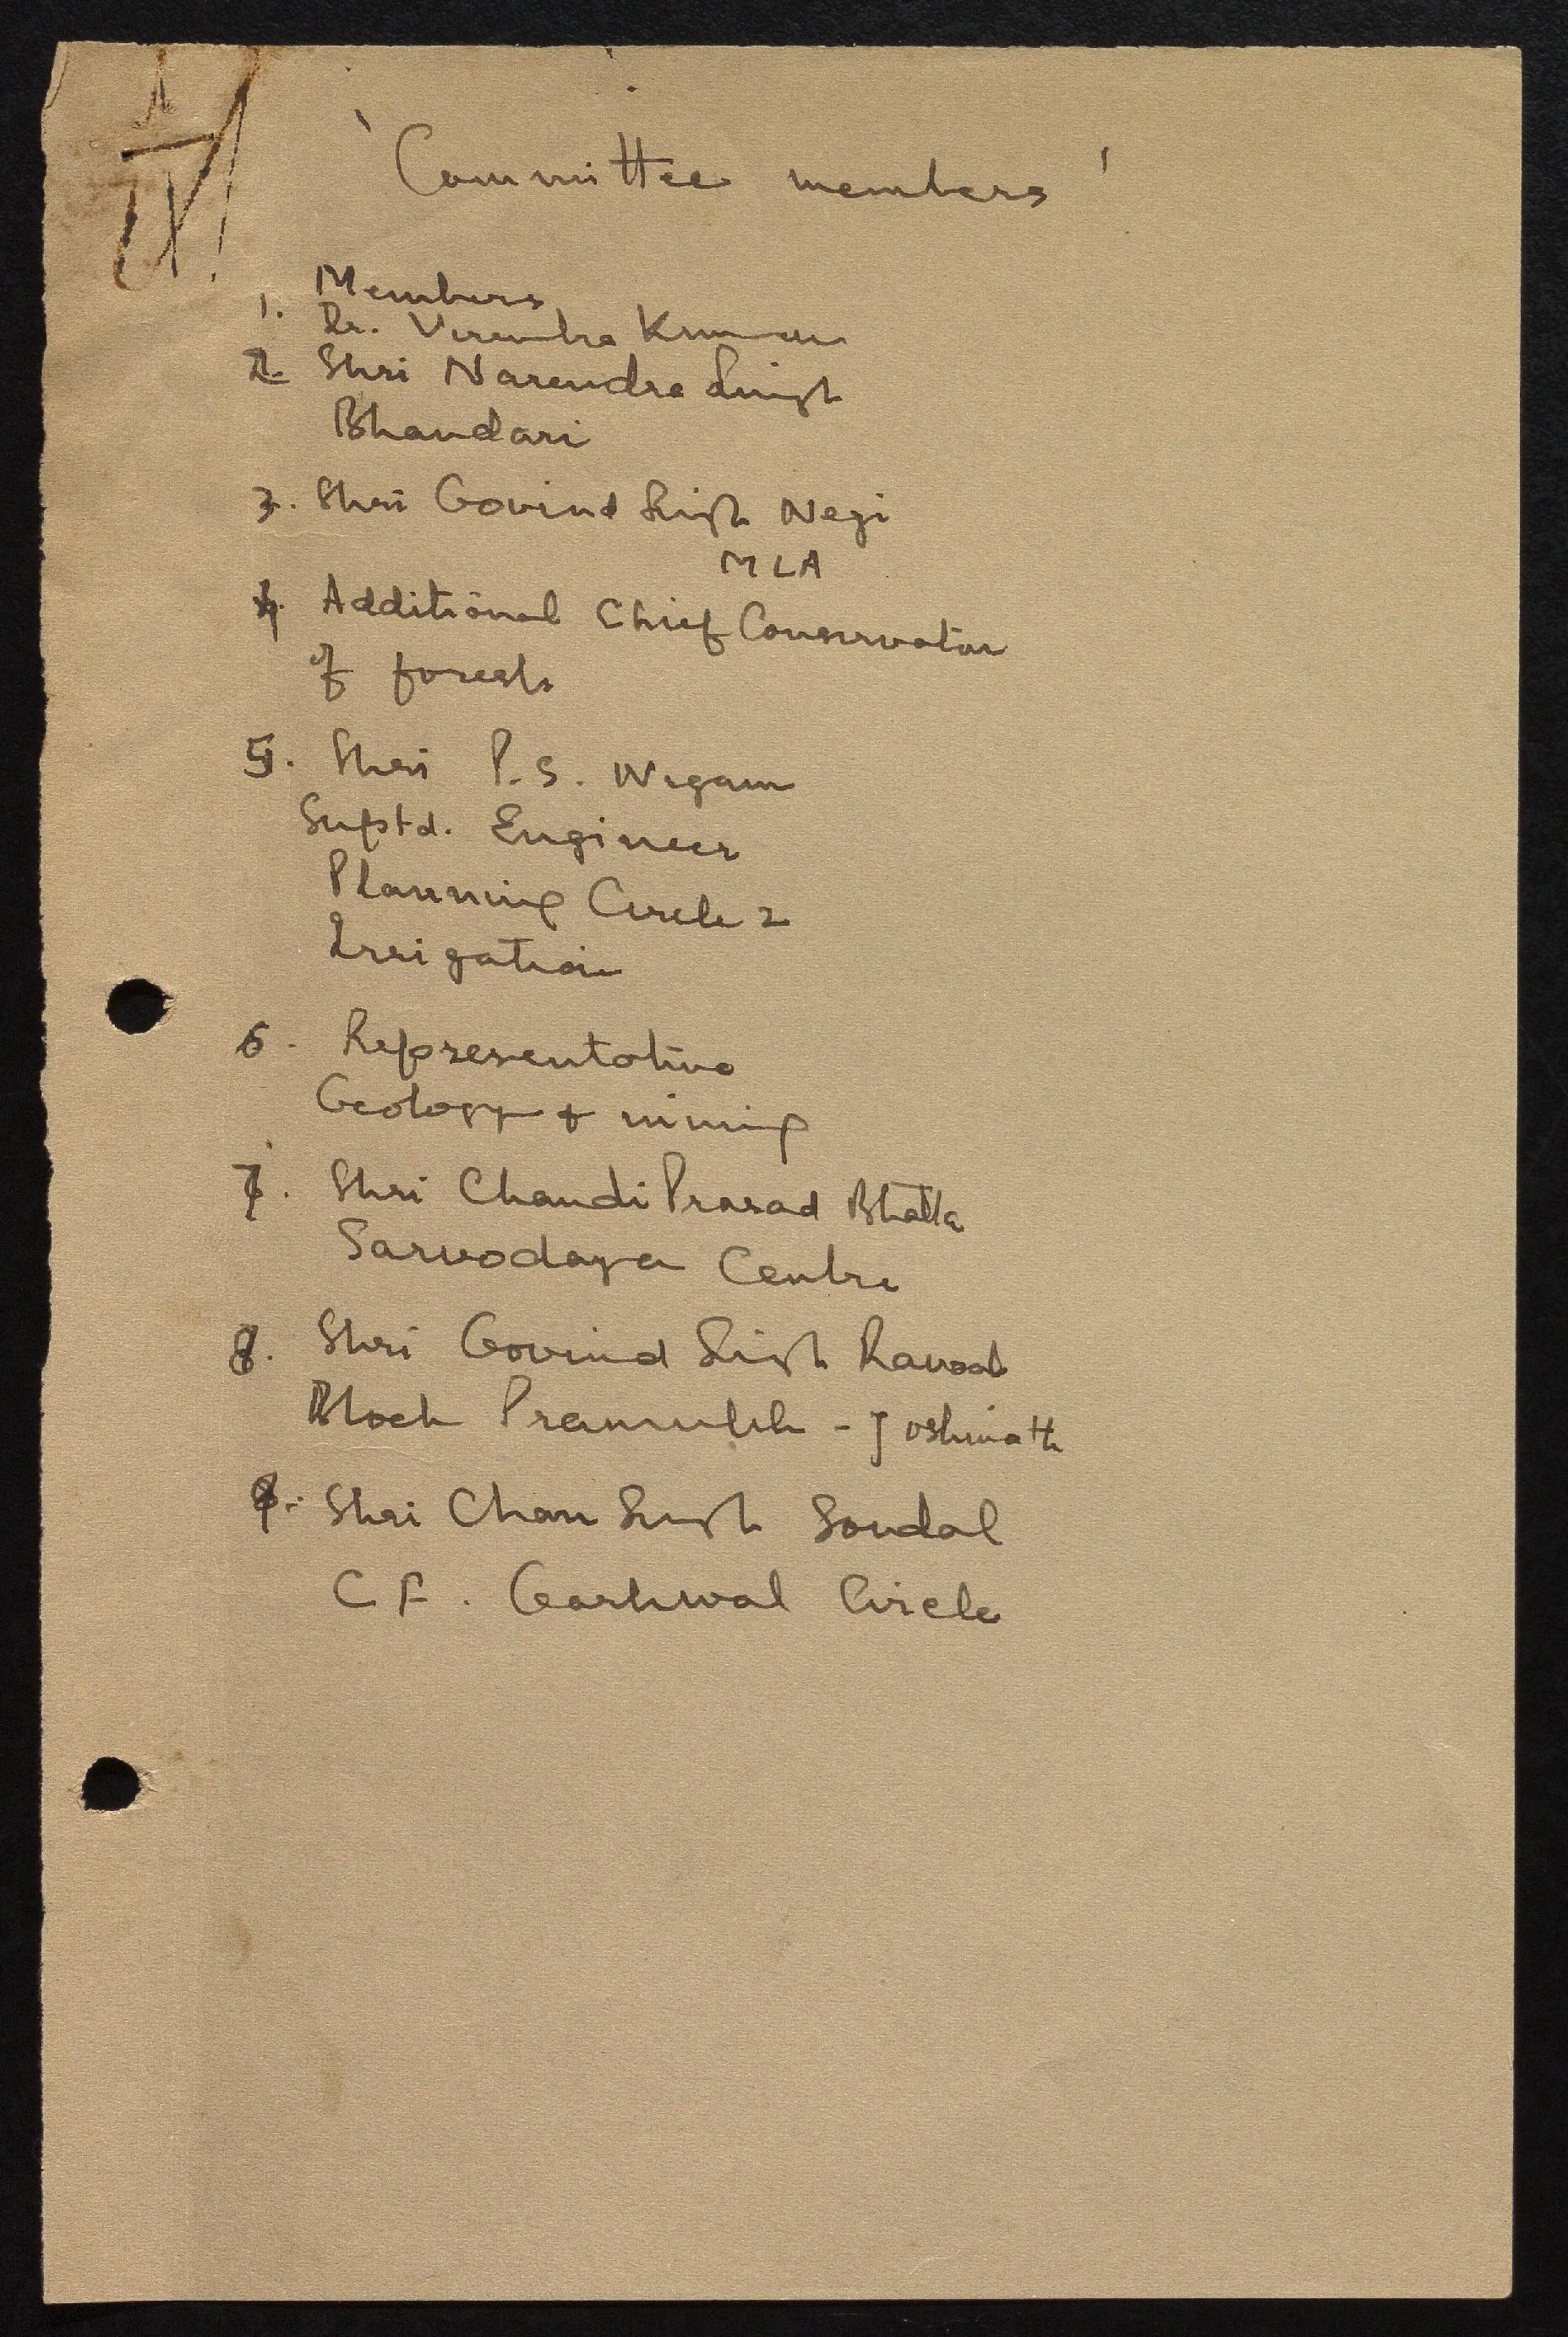 'Committee members'
Members
1. Dr. Virendra Kumar
2. Shri Narendra Singh
Bhandari
3. Shri Govind Singh Negi
MLA
4. Additional Chief Conservator
of forests
5. Shri P.S. Nigam
Suptd. Engineer
Planning Circle 2
Irrigation
6. Representative
Geology + mining
7. Shri Chandi Prasad Bhatta
Sarvodaya Centre
8. Shri Govind Singh Rawat
Block Pramukh - Joshimath
9. Shri Chan Singh
C F. Garhwal Circle